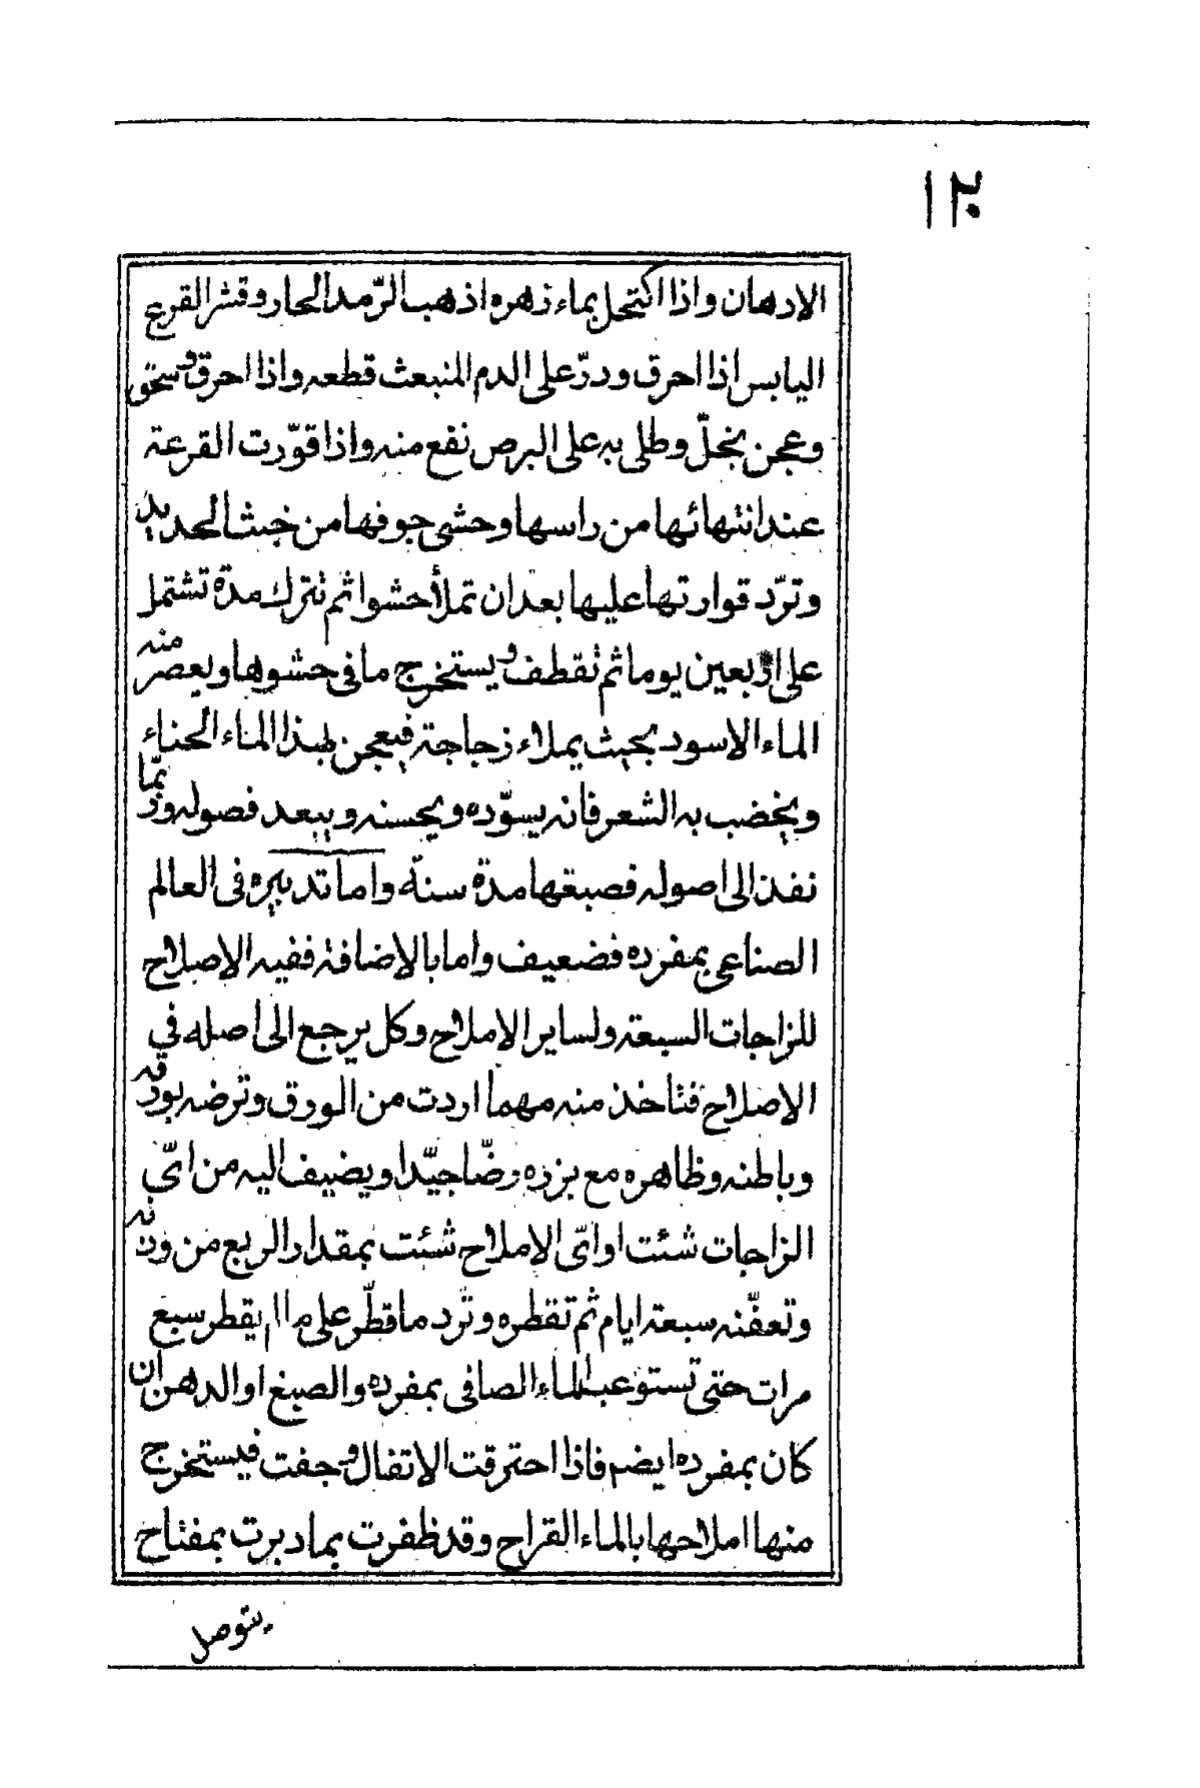 ١٢٠
الادهان واذا اكتحل بماء زهره اذهب الرّمد الحار وقشر القرع
اليابس اذا احرق وذرّ على الدم المنبعث قطعه واذا احرق وسحق
وعجن بخلّ وطلى به على البرص نفع منه واذا قوّرت القرعة
عند انتهائها من راسها وحشى جوفها من خبث الحديد
وتردّ قوارتها عليها بعد ان تملأ حشوا ثم تترك مدة تشتمل
على اربعين يوما ثم تقطف ويستخرج ما فى حشوها ويعصر منه
الماء الاسود بحيث يملاء زجاجة فيعجن بهذا الماء الحناء
ويخضب به الشعر فانه يسوّده ويحسنه ويبعد فصوله وربّما
نفذ الى اصوله فصبغها مدة سنة واما تدبيره فى العالم
الصناعى بمفرده فضعيف واما بالاضافة ففيه الاصلاح
للزاجات السبعة ولساير الاملاح وكل يرجع الى اصله فى
الاصلاح فتاخذ منه مهما اردت من الورق وترضه بورقه
وباطنه وظاهره مع بزره رضّا جيّدا ويضيف اليه من اىّ
الزاجات شئت او اىّ الاملاح شئت بمقدار الربع من وزنه
وتعفّنه سبعة ايام ثم تقطره وتردّ ما قطّر على ما لم يقطر سبع
مرات حتى تستوعب الماء الصافى بمفرده والصبغ او الدهن ان
كان بمفرده ايضم فاذا احترقت الاتفال وجفت فيستخرج
منها املاحها بالماء القراح وقد ظفرت بما دبرت بمفتاح
يتوصل